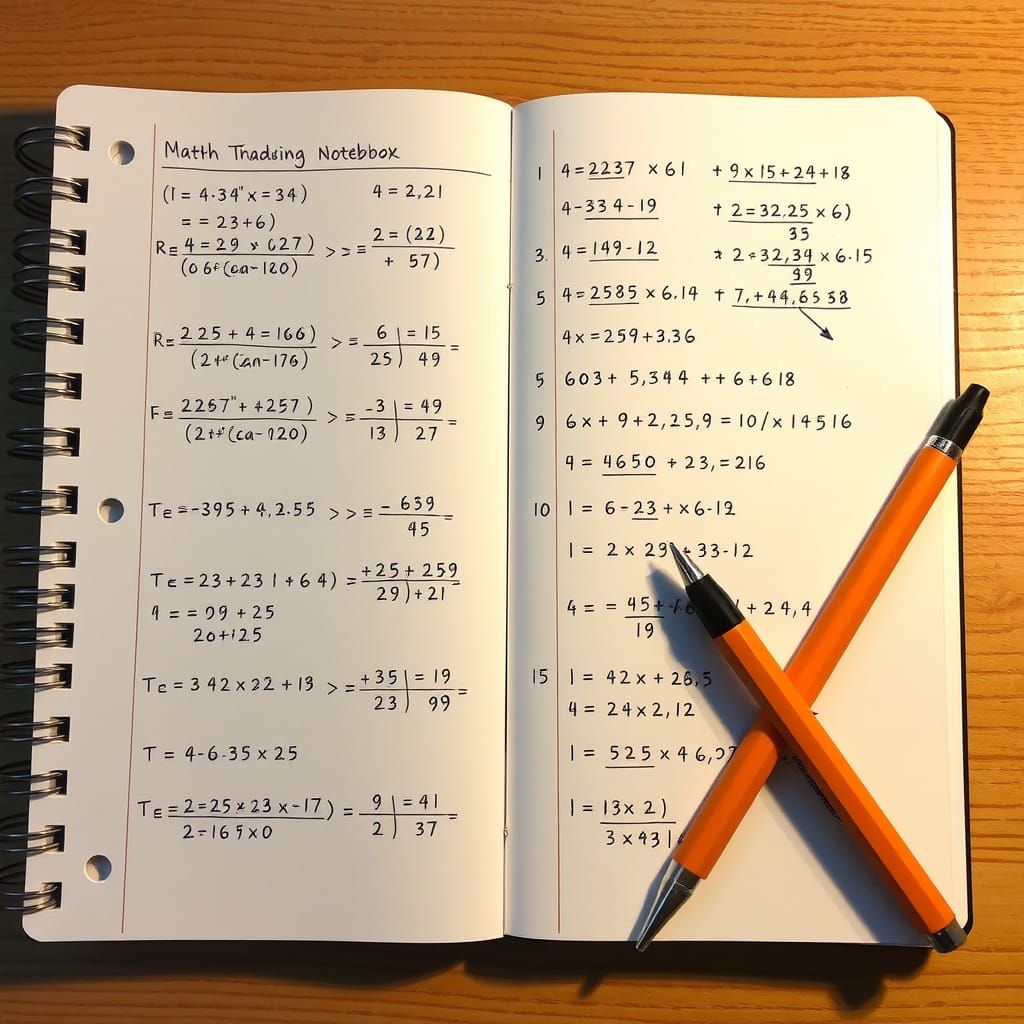 Matth Thadsing Notebbox
(I = 4.34" x = 34) 4 = 2,21
= = 23+6)
R= 4 = 29 × (27) >>= 2 = (22)
+ 57)
R= 225 + 4 = 166) >= 6 | = 15
25) 49 =
F= 2257" + +257) >= -3 | = 49
13) 27 =
Te =-395 + 4,2.55 >>= - 639
45 =
Te = 23 + 23 | + 6 4) = +25 + 259
29) +21
20+125
Te = 3 42 x 22 + 13 >= +35 | = 19
23) 99 =
T = 4-6-35 x 25
Te= 2=25 x 23 x -17) = 9 | = 41
2) 37 =
1 4 = 2237 × 61 + 9 x 15 + 24 + 18
4-334-19 + 2 = 32,25 x 6)
35
3. 4 = 149-12 2 = 32,34 x 6.15
5 4 = 2585 x 6.14 + 7,+44,6538
4x = 259+3.36
5 603+ 5,344 ++6+618
9 6x + 9+2,25,9 = 10/x 14516
4650 + 23,=216
10 1 = 6-23 + x6-12
1 = 2 x 29 + 33-12
4 = = 45+ + 24,4
19
15 1 = 42x + 26,5
4 = 24 x 2,12
1 = 525 x 46,
1 = 13x 2)
3 x 431